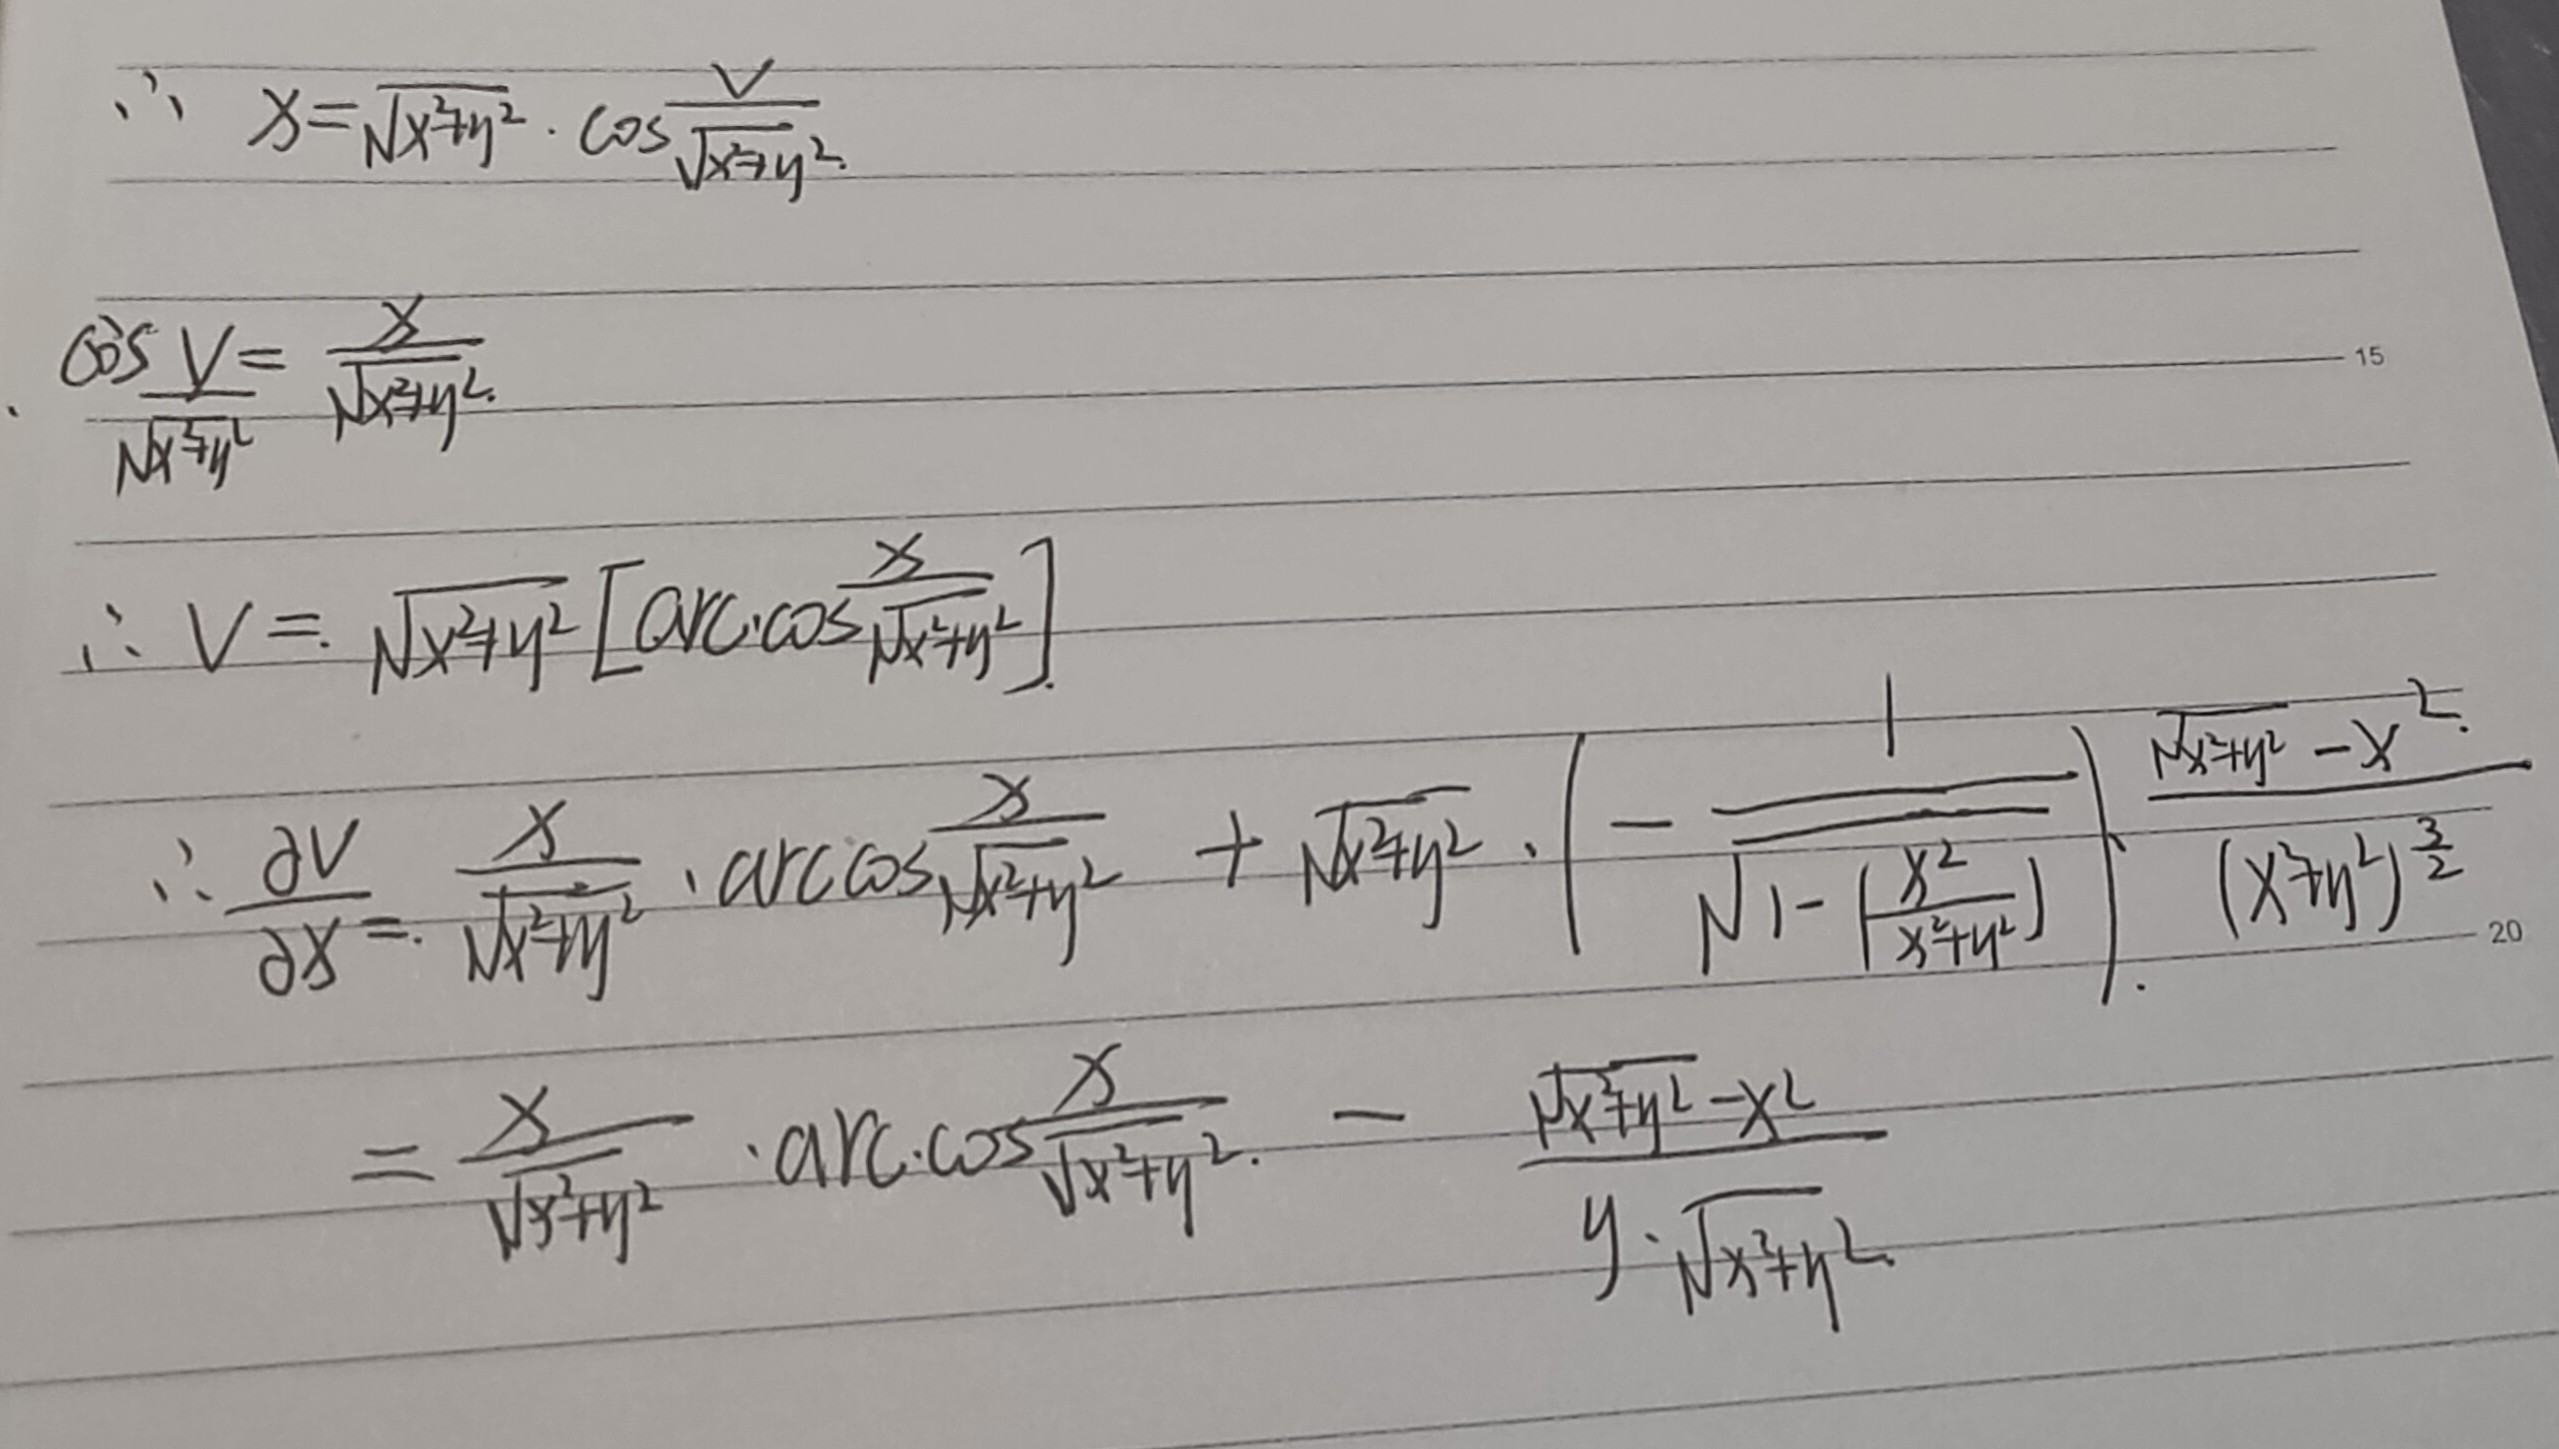 ∴ x = √(x²+y²) · cos (v/√(x²+y²))
cos (v/√(x²+y²)) = x/√(x²+y²)
15
∴ v = √(x²+y²) [arc·cos (x/√(x²+y²))]
∴ ∂v/∂x = x/√(x²+y²) · arccos (x/√(x²+y²)) + √(x²+y²) · (− 1/√(1−(x²/(x²+y²)))) · (√(x²+y²) − x²)/(x²+y²)^(3/2)
20
= x/√(x²+y²) · arc·cos (x/√(x²+y²)) − (√(x²+y²) − x²)/(y·√(x²+y²))